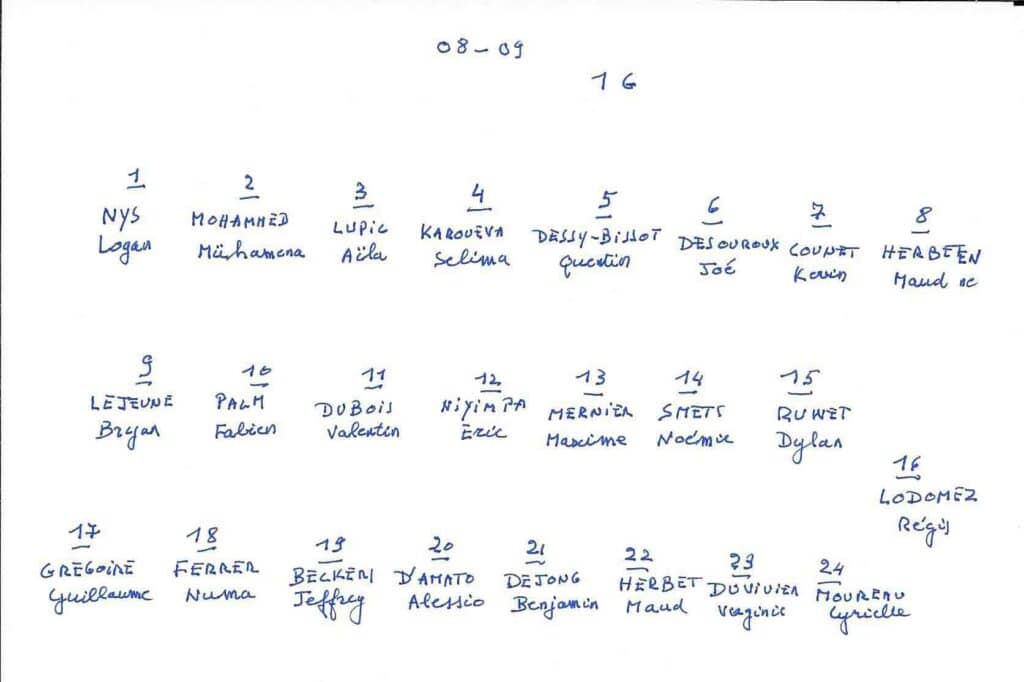 08-09
1G
1 2 3 4 5 6 7 8
NYS MOHAMMED LUPIC KAROUEVA DESSY-BISSOT DESOUROUX COUNET HERBEEN
Logan Aïla Selima Quentin Joé Kevin Maud
9 10 11 12 13 14 15
LEJEUNE PALM DUBOIS MERNIER SMETS RUWET
Bryan Fabien Valentin Eric Maxime Noémie Dylan
16
LODOMEZ
Régis
17 18 19 20 21 22 23 24
GREGOIRE FERRER D'AMATO DEJONG HERBET DUVIVIER MOUREAU
Guillaume Numa Jeffrey Alessio Benjamin Maud Virginie Cyrielle